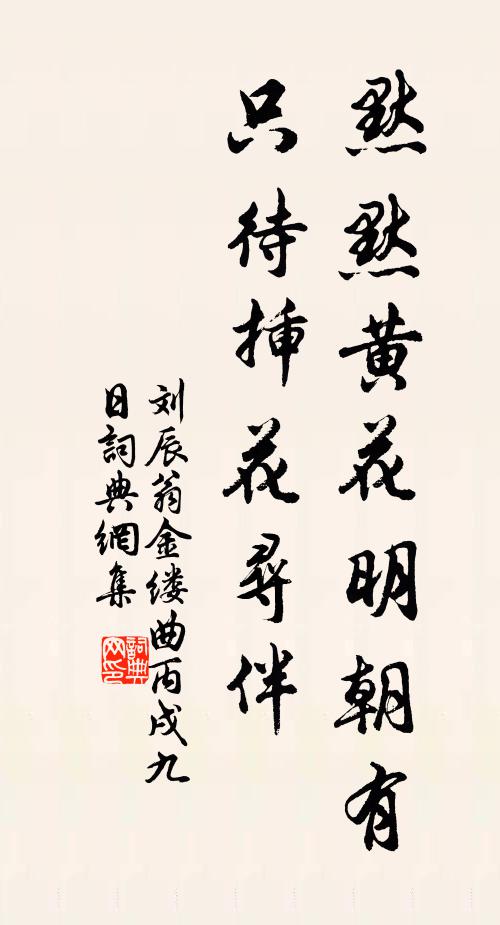 默默黄花明朝有
只待插花尋伴
刘辰翁金缕曲丙戌九
日詞典網集
詞典網印